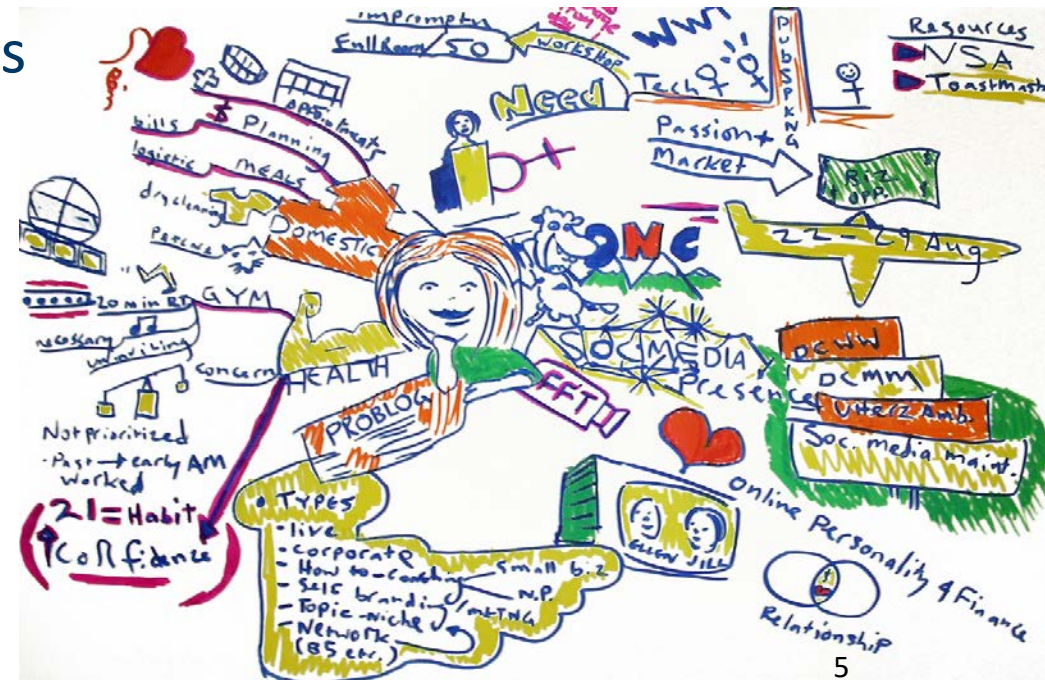 s
impromptu
Full Room/50
WORKSHOP
Need
Tech
PubSPKNG
Resources
NSA
Passion +
Market
BIZ
OPP.
22-29 Aug
$ Planning
bills
logistic
MEALS
dry cleaning
DOMESTIC
GYM
20 min RT
necessary
concern
HEALTH
Not prioritized
- Past → early AM
worked
21 = Habit
Confidance
PROBLOG
FFT
SOC MEDIA
Presence
DCWW
DCMM
Utterz Amb.
Soc. media maint.
TYPES
- live
- corporate
- How to - coaching
small biz
N.P.
- Self branding/mkTNG
- Topic-Niche
- Network
(B5 etc.)
ELLEN
JILL
online Personality & Finance
Relationship
5